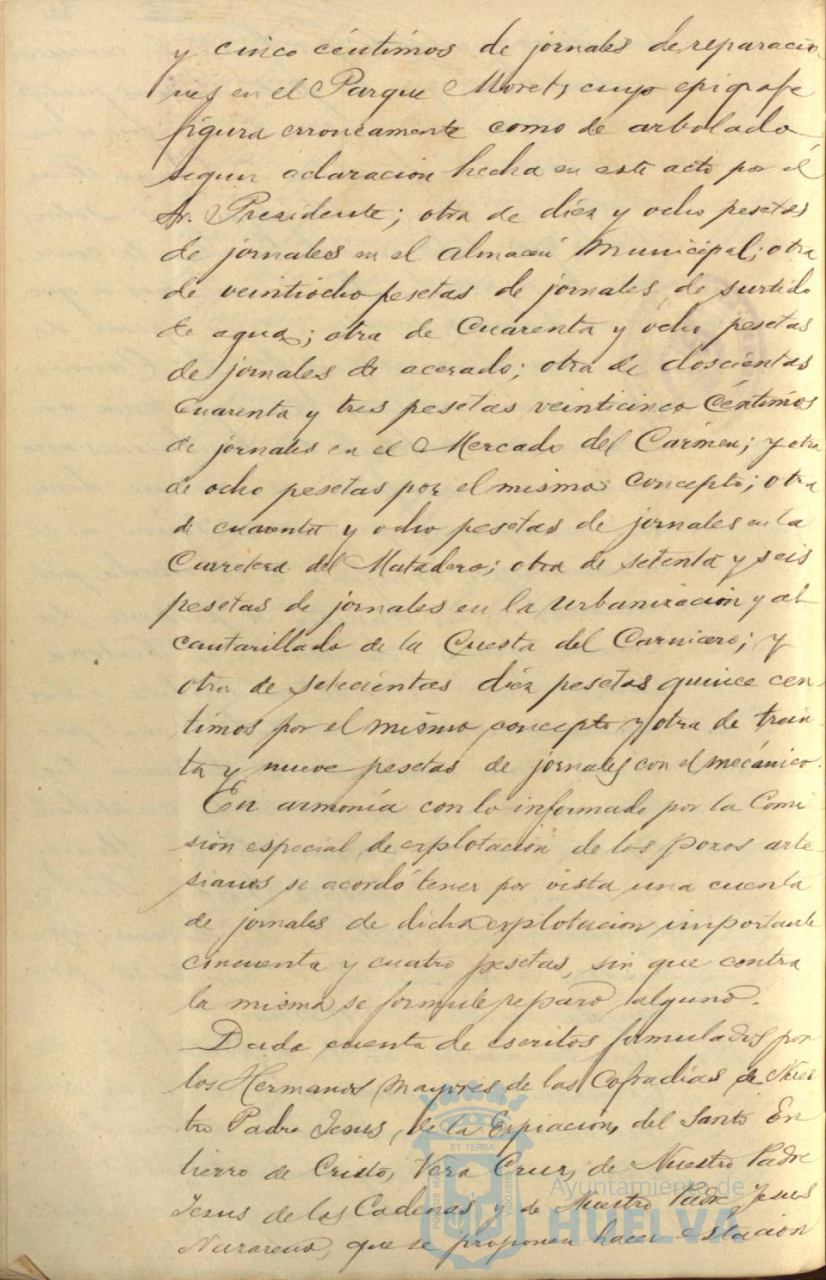 y cinco céntimos de jornales de reparacio-
nes en el Parque Moret, cuyo epigrafe
figura erroneamente como de arbolado
segun aclaracion hecha en este acto por el
Sr. Presidente; otra de diez y ocho pesetas
de jornales en el almacen Municipal; otra
de veintiocho pesetas de jornales de surtido
de agua; otra de Cuarenta y ocho pesetas
de jornales de acerado; otra de doscientas
cuarenta y tres pesetas veinticinco Céntimos
de jornales en el Mercado del Cármen; y otra
de ocho pesetas por el mismo concepto; otra
de cuarenta y ocho pesetas de jornales en la
Carretera del Matadero; otra de setenta y seis
pesetas de jornales en la urbanizacion y al-
cantarillado de la Cuesta del Carnicero; y
otra de setecientas diez pesetas quince cen-
timos por el mismo concepto y otra de trein-
ta y nueve pesetas de jornales con el mecánico.
En armonía con lo informado por la Comi-
sión especial de explotación de los pozos arte-
sianos se acordó tener por vista una cuenta
de jornales de dicha explotacion importante
cincuenta y cuatro pesetas, sin que contra
la misma se formule reparo alguno.
Dada cuenta de escritos formulados por
los Hermanos mayores de las Cofradías de Nues-
tro Padre Jesus, de la Expiacion, del Santo En
tierro de Cristo, Vera Cruz, de Nuestro Padre
Jesus de las Cadenas y de Nuestro Padre Jesus
Nazareno, que se proponen hacer estación
ET TERRÆ
Ayuntamiento de
HUELVA